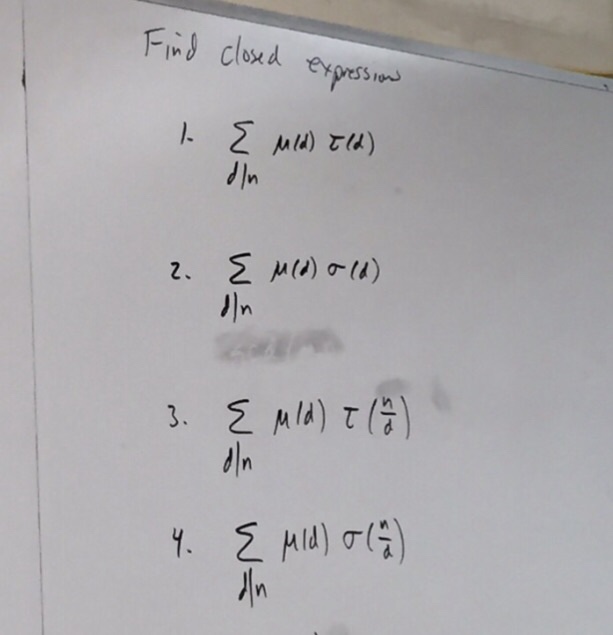 Find closed expressions
1. ∑ μ(d) τ(d)
d|n
2. ∑ μ(d) σ(d)
d|n
3. ∑ μ(d) τ(n/d)
d|n
4. ∑ μ(d) σ(n/d)
d|n